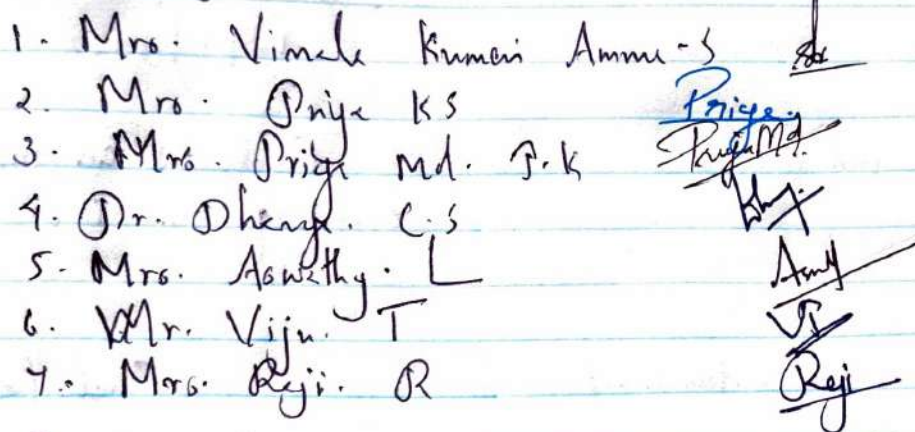 1. Mrs. Vimala Kumari Amma-S
2. Mrs. Priya KS Priya.
3. Mrs. Priya Md. P.K Priya Md.
4. Dr. Dhanya. C.S
5. Mrs. Aswathy. L
6. Mr. Viju. T
7. Mrs. Reji. R Reji